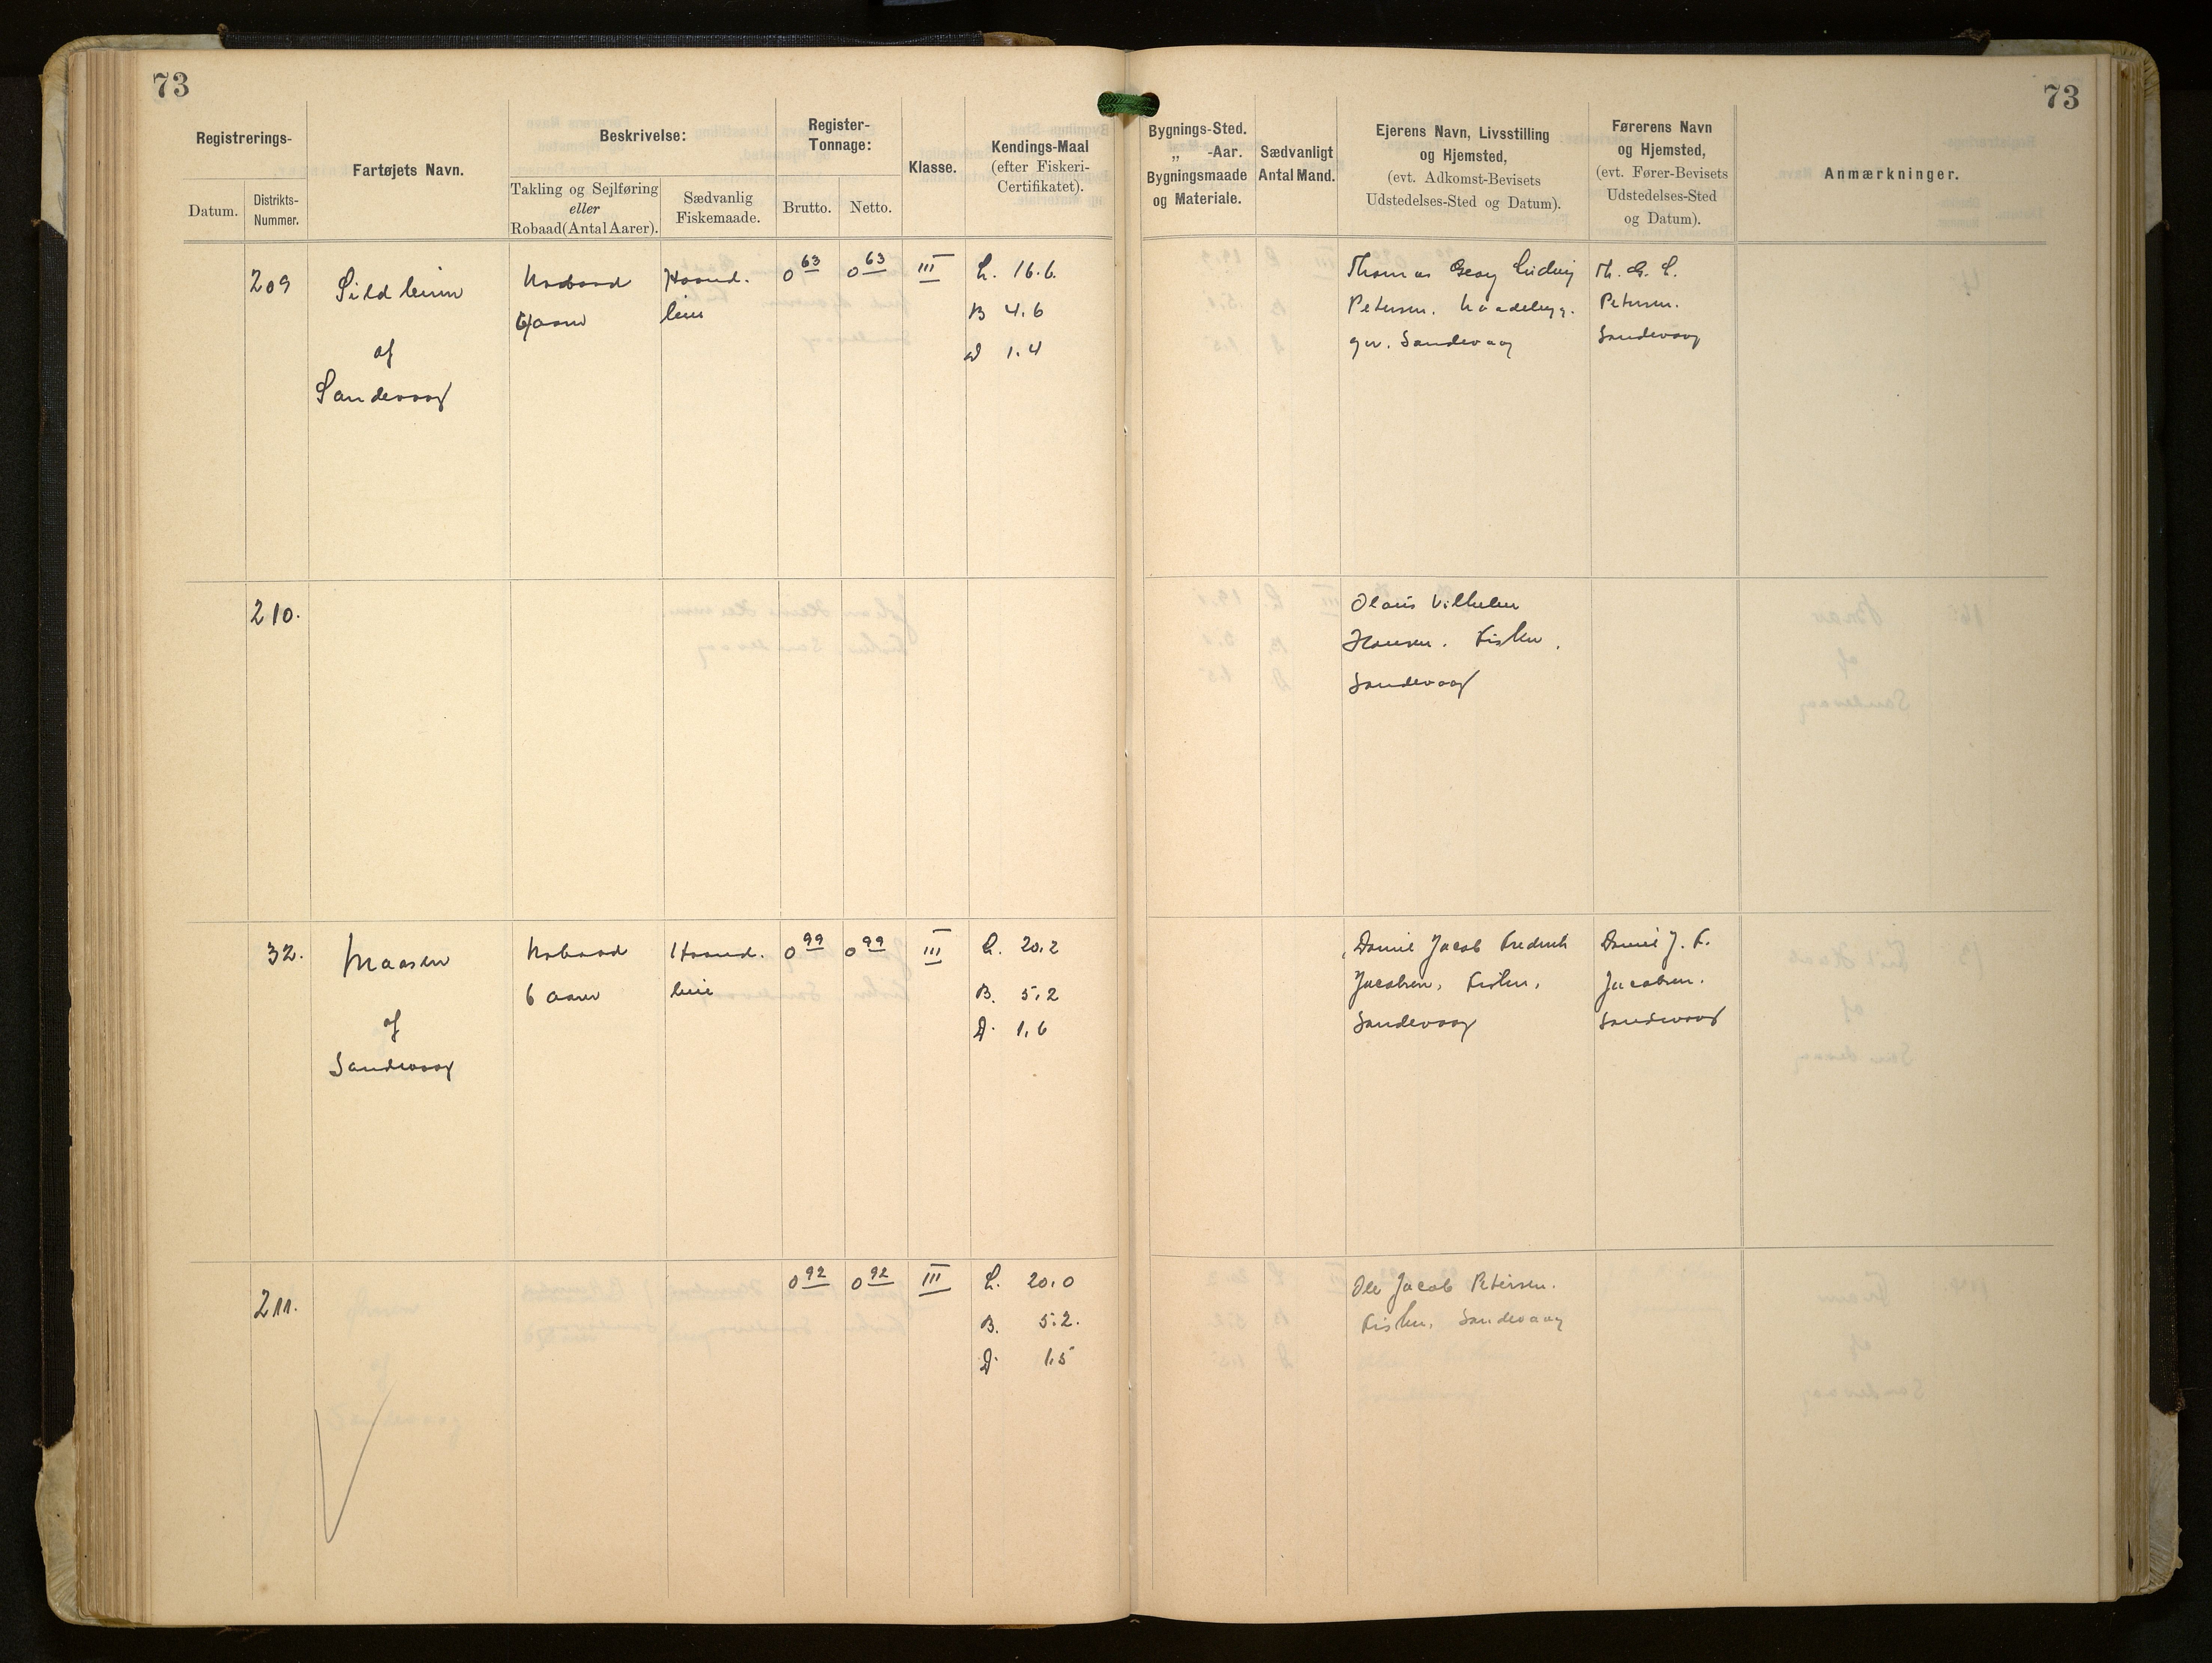 73
73
Registrerings-
Datum.
Distrikts-
Nummer.
Fartøjets Navn.
Beskrivelse:
Takling og Sejlføring
eller
Robaad (Antal Aarer).
Sædvanlig
Fiskemaade.
Register-
Tonnage:
Brutto.
Netto.
Klasse.
Kendings-Maal
(efter Fiskeri-
Certifikatet).
Bygnings-Sted.
„ -Aar.
Bygningsmaade
og Materiale.
Sædvanligt
Antal Mand.
Ejerens Navn, Livsstilling
og Hjemsted,
(evt. Adkomst-Bevisets
Udstedelses-Sted og Datum).
Førerens Navn
og Hjemsted,
(evt. Fører-Bevisets
Udstedelses-Sted
og Datum).
Anmærkninger.
209
af
Sandevaag
Robaad
6 aarer
Haand-
line
0 63
0 63
III
L. 16.6
B 4.6
D 1.4
Thomas Georg Ludvig
Petersen.
Sandevaag
Th. G. L.
Petersen.
Sandevaag
210.
Olaus Vilhelm
Hansen. Fisker.
Sandevaag
32.
Maasen
af
Sandevaag
Robaad
6 aarer
Haand-
line
0 99
0 99
III
L. 20.2
B. 5.2
D. 1.6
Daniel Jacob Frederik
Jacobsen. Fisker.
Sandevaag
Daniel J. F.
Jacobsen.
Sandevaag
211.
0 92
0 92
III
L. 20.0
B. 5.2.
D. 1.5
Ole Jacob Petersen.
Fisker. Sandevaag